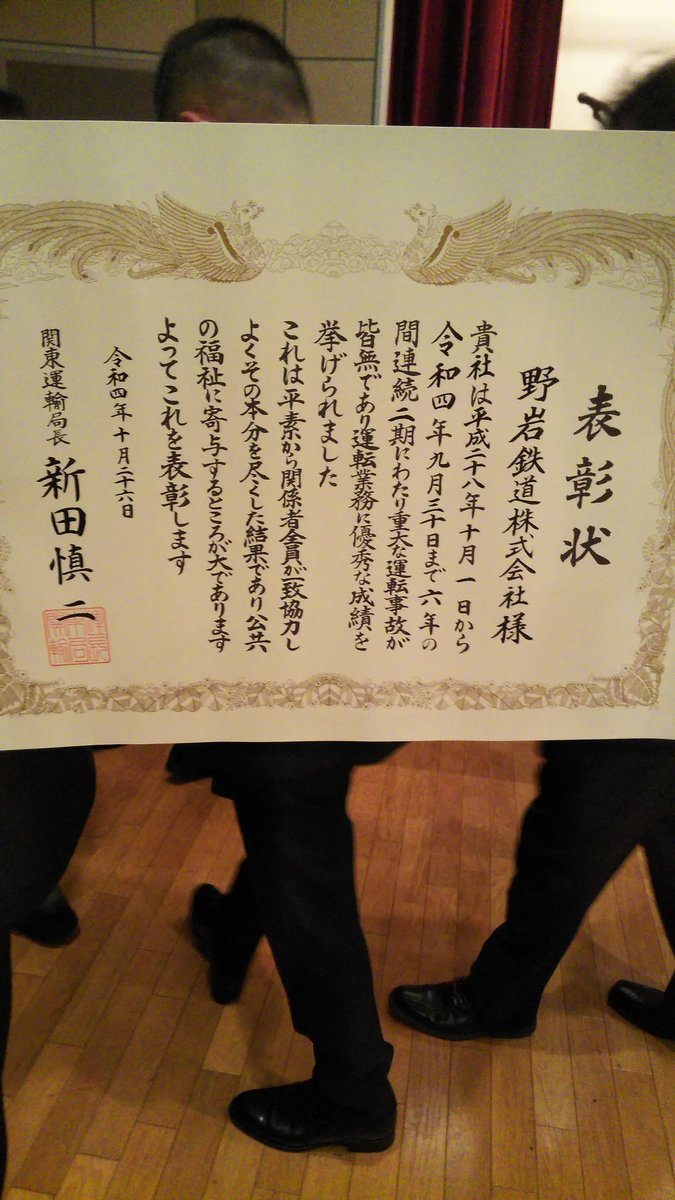 表彰状
野岩鉄道株式会社様
貴社は平成二十八年十月一日から
令和四年九月三十日まで六年の
間連続二期にわたり重大な運転事故が
皆無であり運転業務に優秀な成績を
挙げられました
これは平素から関係者全員が一致協力し
よくその本分を尽くした結果であり公共
の福祉に寄与するところが大であります
よってこれを表彰します
令和四年十月二十六日
関東運輸局長 新田慎二